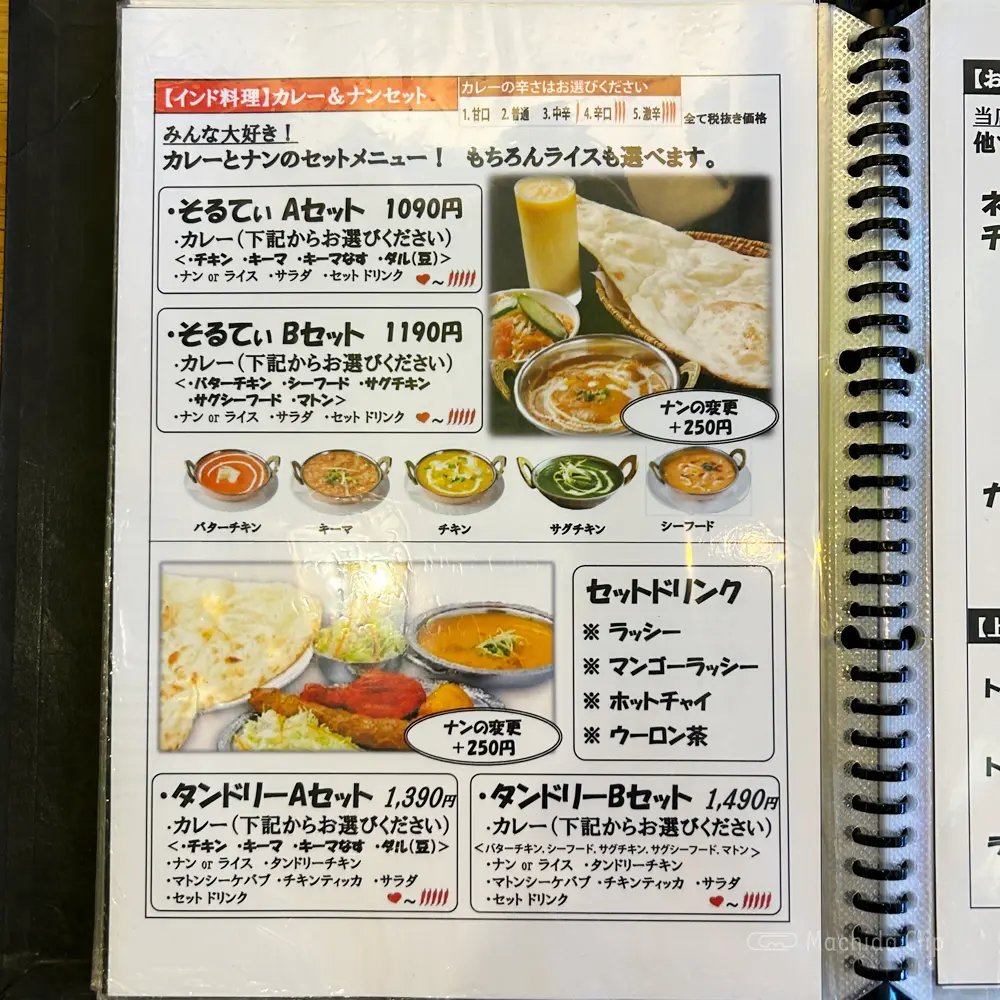 【インド料理】カレー＆ナンセット
カレーの辛さはお選びください
1.甘口 2.普通 3.中辛 4.辛口 5.激辛
全て税抜き価格
みんな大好き！
カレーとナンのセットメニュー！ もちろんライスも選べます。
・そるてぃ Aセット 1090円
・カレー（下記からお選びください）
＜・チキン ・キーマ ・キーマなす ・ダル（豆）＞
・ナン or ライス ・サラダ ・セットドリンク ～
・そるてぃ Bセット 1190円
・カレー（下記からお選びください）
＜・バターチキン ・シーフード ・サグチキン
・サグシーフード ・マトン＞
・ナン or ライス ・サラダ ・セットドリンク ～
ナンの変更
＋250円
バターチキン キーマ チキン サグチキン シーフード
ナンの変更
＋250円
セットドリンク
※ ラッシー
※ マンゴーラッシー
※ ホットチャイ
※ ウーロン茶
・タンドリーAセット 1,390円
・カレー（下記からお選びください）
＜・チキン ・キーマ ・キーマなす ・ダル（豆）＞
・ナン or ライス ・タンドリーチキン
・マトンシーケバブ ・チキンティッカ ・サラダ
・セットドリンク ～
・タンドリーBセット 1,490円
・カレー（下記からお選びください）
＜バターチキン.シーフード.サグチキン.サグシーフード.マトン＞
・ナン or ライス ・タンドリーチキン
・マトンシーケバブ ・チキンティッカ ・サラダ
・セットドリンク ～
【お
他
チ
【上
ト
ト
Machida Clip